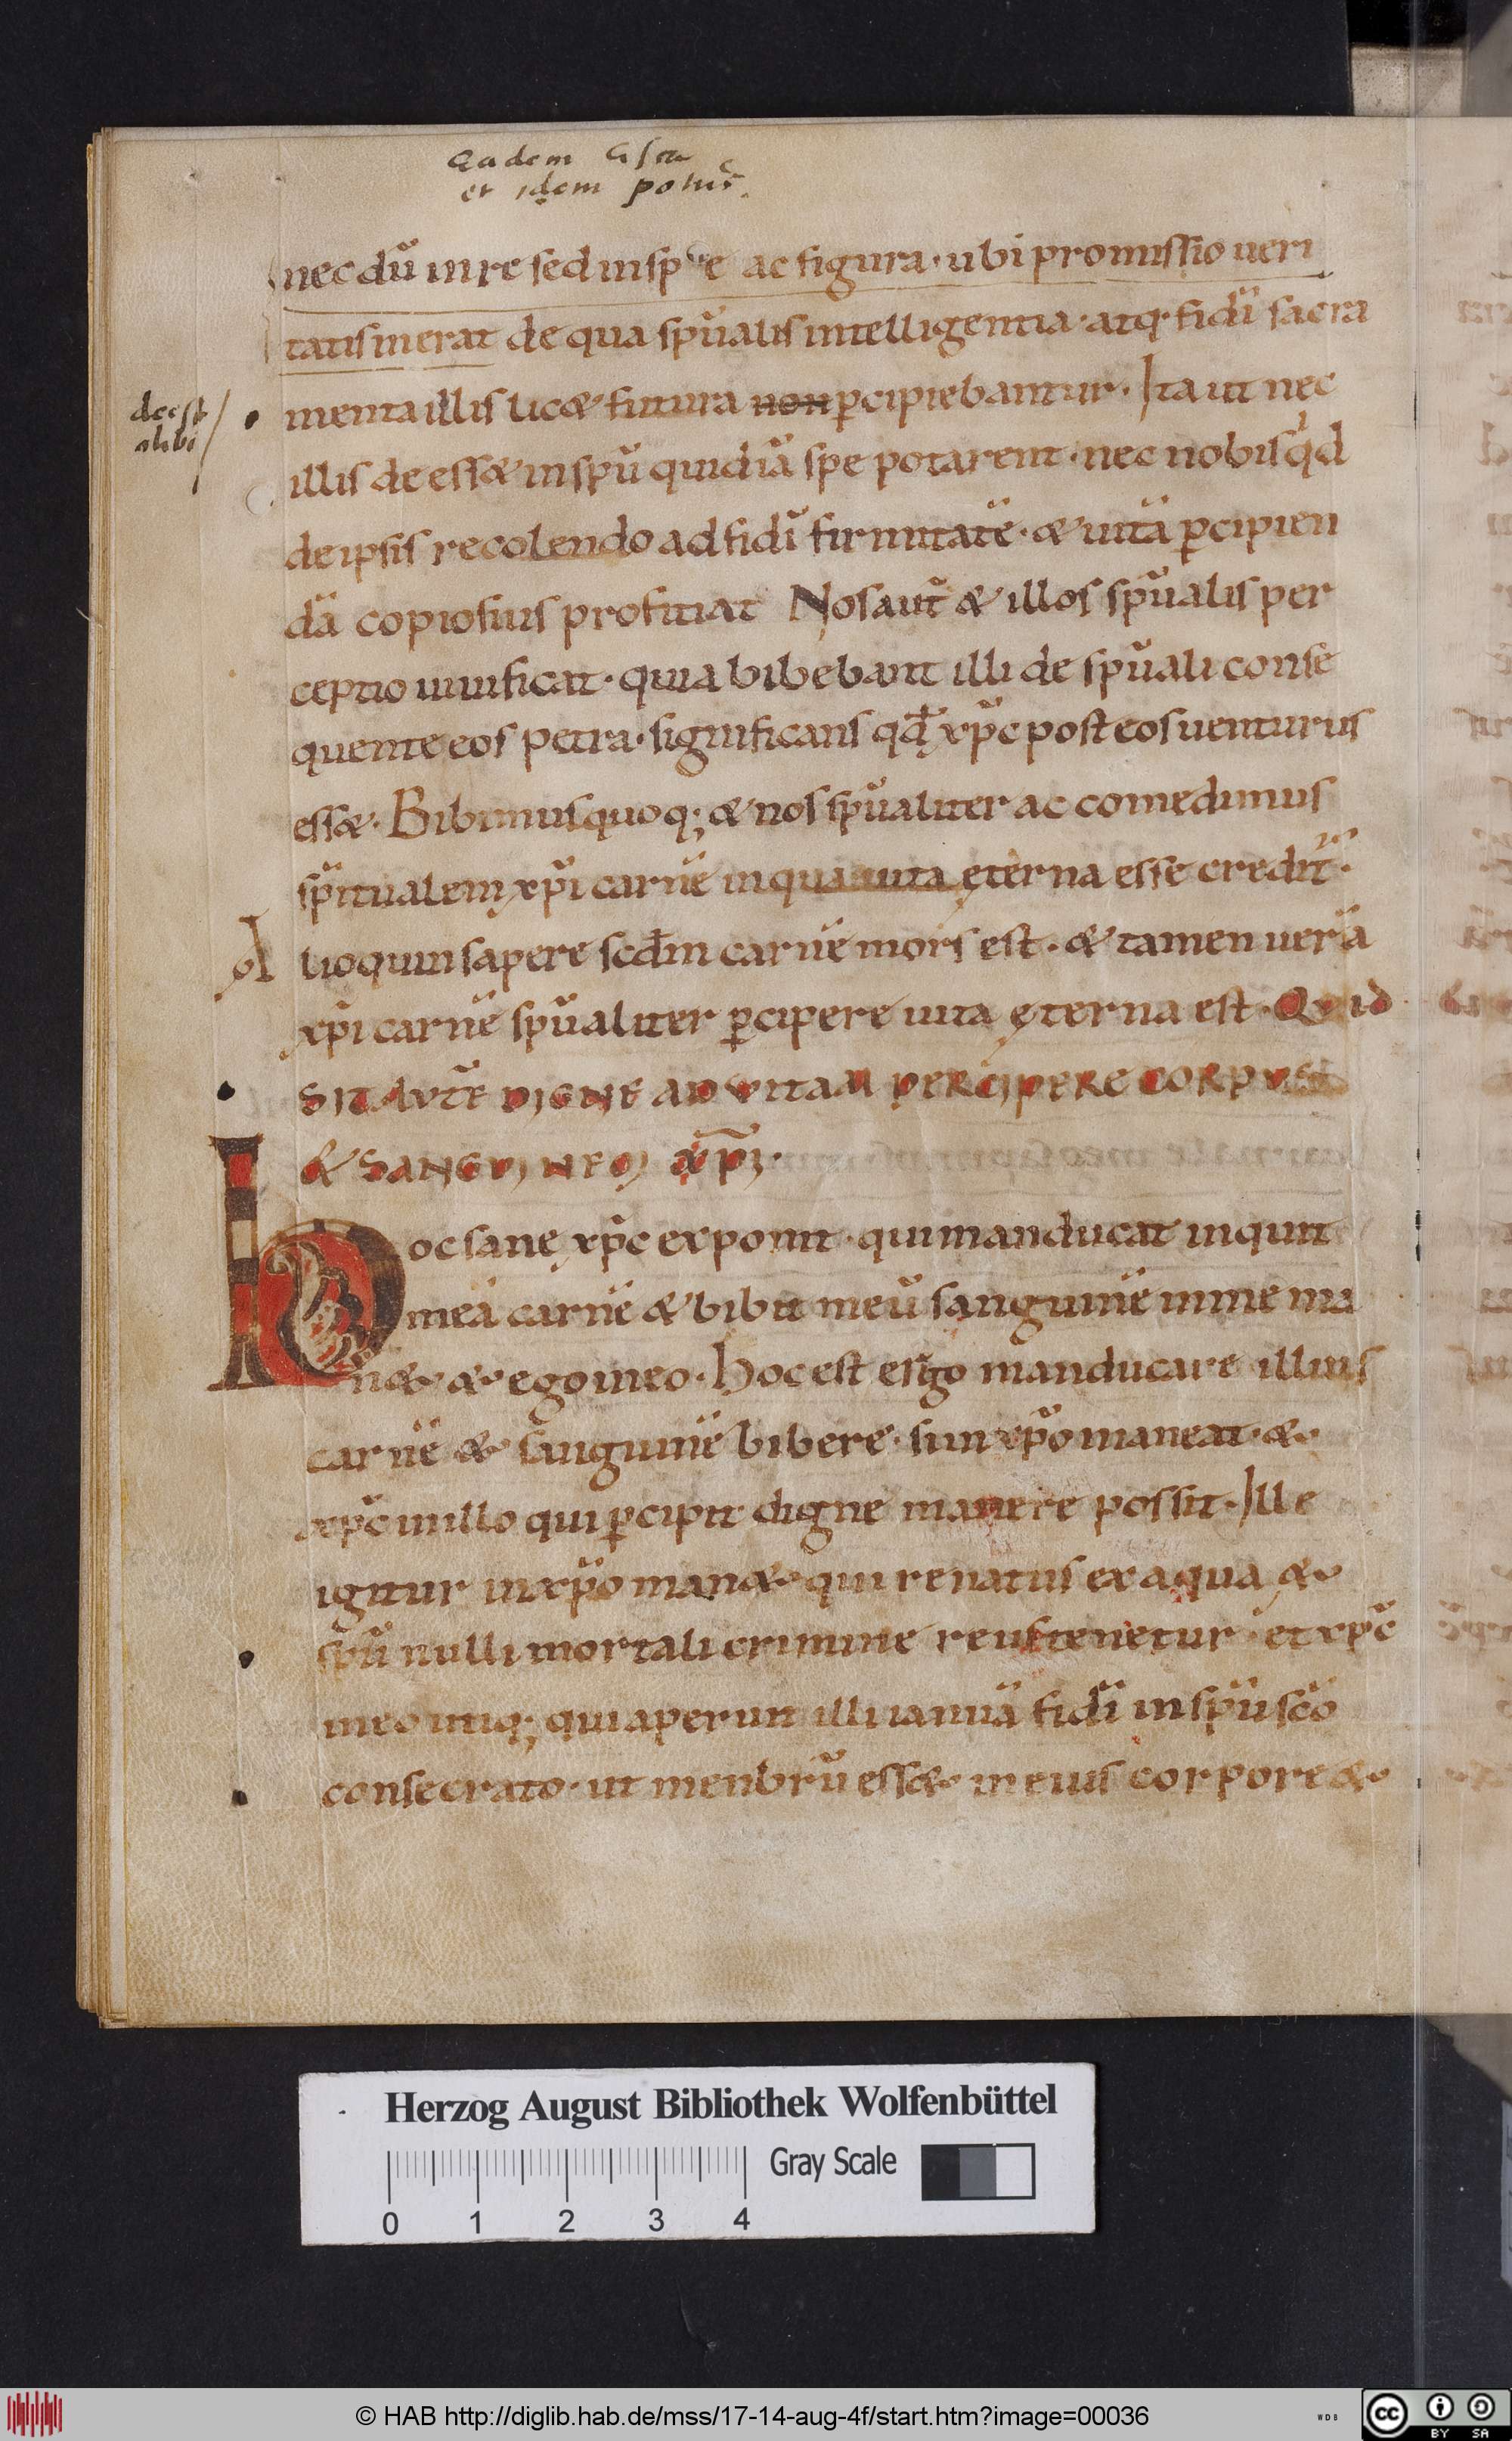 Eadem Esca
et idem potus.
nec dū in re sed in spe ac figura · ubi promissio ueri
tatis inerat de qua spūalis intelligentia · atq; fidī sacra
deest
alibi
menta illis licæ& futura non p̱cipiebantur · Ita ut nec
illis deess& in spū quid iā spe potarent · nec nobis qd
de ipsis recolendo ad fidī firmitatē · & uitā p̱cipien
dā copiosius profitiat Nos aut̄ & illos spūalis per
ceptio uiuificat · quia bibebant illi de spūali conse
quente eos petra · significans qđ xp̄c post eos uenturus
ess& · Bibimus quoq; & nos spūaliter ac comedimus
sp̄itualem xp̄i carnē in qua uita ęterna esse credit̄ ·
A lioquin sapere scđm carnē mors est · & tamen uerā
xp̄i carnē spūaliter p̱cipere uita ęterna est · QUID
SIT AUTĒ DIGNE AD VITAM PERCIPERE CORPUS
& SANGUINEM XP̄I ·
Hoc sane xp̄c exponit · qui manducat inquit
meā carnē & bibit meū sanguinē in me ma
n& · & ego in eo · Hoc est ergo manducare illius
carnē & sanguinē bibere · si in xp̄o maneat · &
xp̄c in illo qui p̱cipit digne manere possit · Ille
igitur in xp̄o man& qui renatus ex aqua &
spū nulli mortali crimine reus tenetur · et xp̄c
in eo utiq; qui aperuit illi ianuā fidī in spū scō
consecrato · ut menbrū ess& in eius corpore &
Herzog August Bibliothek Wolfenbüttel
Gray Scale
0 1 2 3 4
© HAB http://diglib.hab.de/mss/17-14-aug-4f/start.htm?image=00036
WDB
cc BY SA